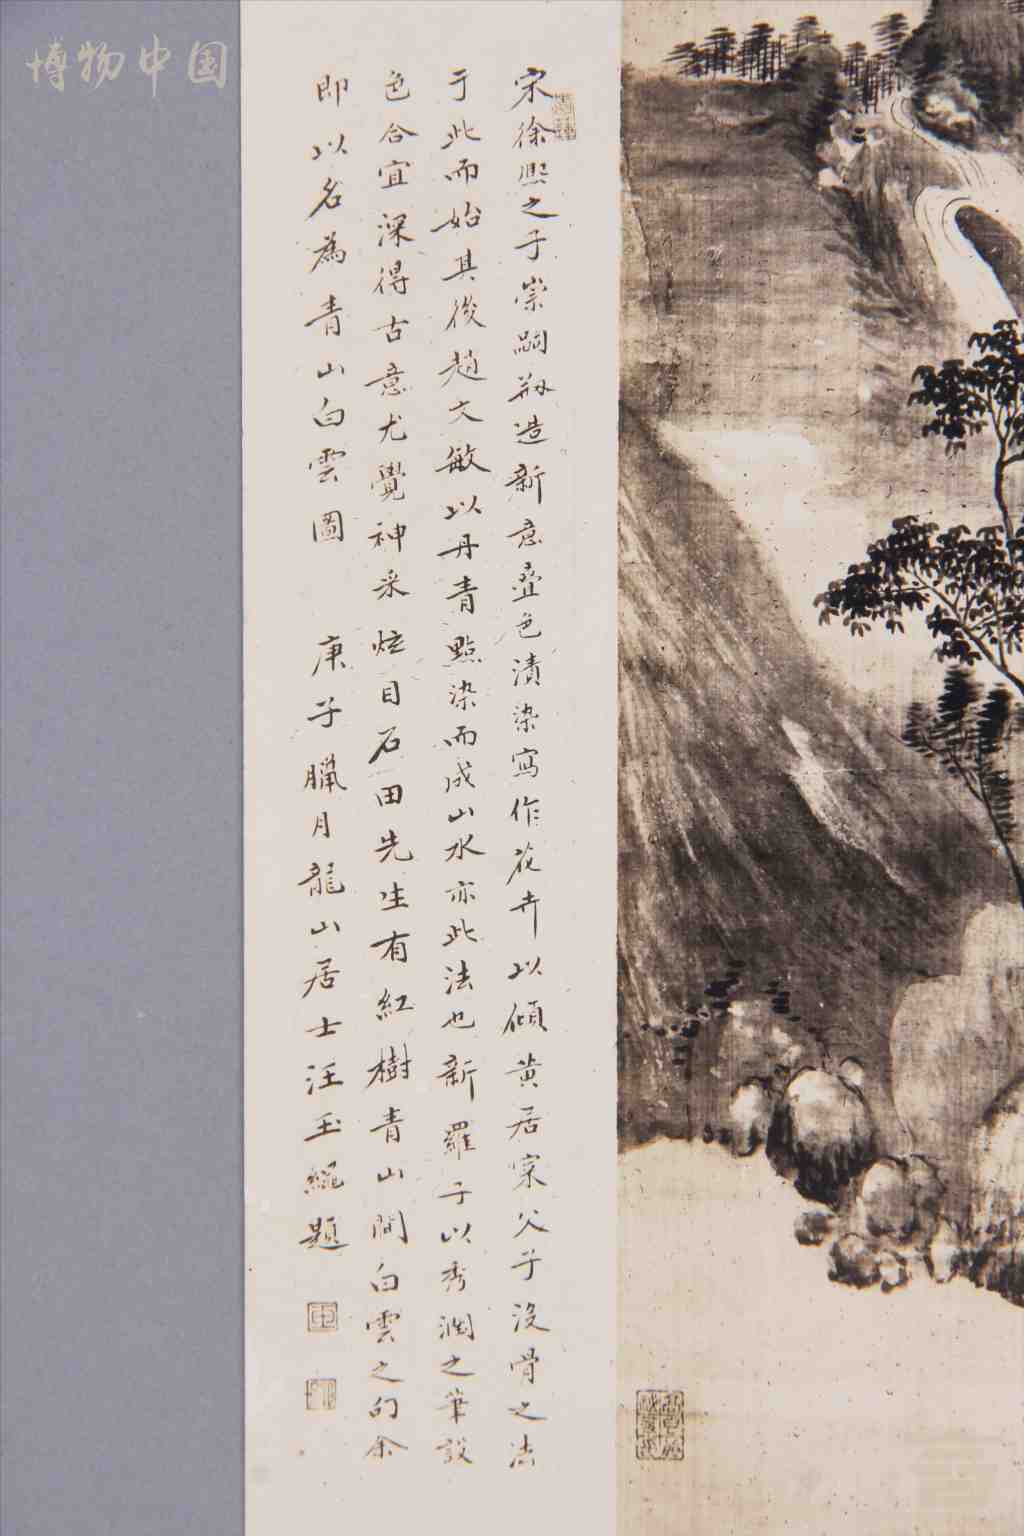 博物中国
宋徐熙之子崇嗣刱造新意疊色漬染寫作花卉以傾黃居寀父子沒骨之法
于此而始其後趙文敏以丹青點染而成山水亦此法也新羅子以秀潤之筆設
色合宜深得古意尤覺神采炫目石田先生有紅樹青山間白雲之句余
即以名為青山白雲圖 庚子臘月龍山居士汪玉繩題